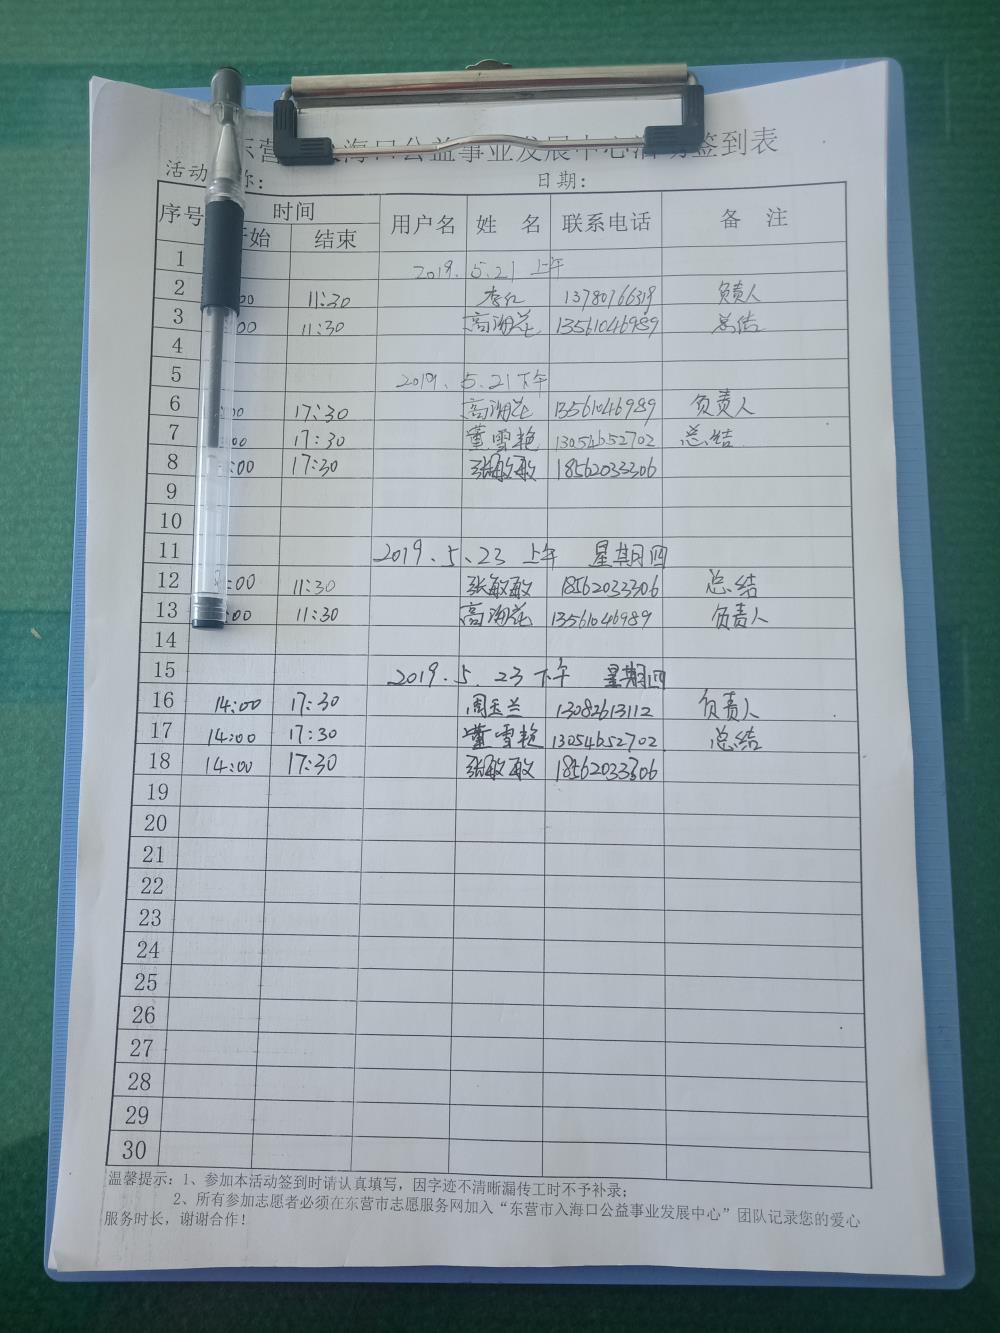 东营 海口公益事业发展中心活动签到表
活动 称： 日期：
序号 时间 用户名 姓 名 联系电话 备 注
开始 结束
1 2019.5.21 上午
2 :00 11:30 李红 13780766319 负责人
3 :00 11:30 高海花 13561046989 总结
4
5 2019.5.21下午
6 :00 17:30 高海花 13561046989 负责人
7 :00 17:30 董雪艳 13054652702 总结
8 :00 17:30 张敏敏 18562033306
9
10
11 2019.5.23 上午 星期四
12 :00 11:30 张敏敏 18562033306 总结
13 :00 11:30 高海花 13561046989 负责人
14
15 2019.5.23 下午 星期四
16 14:00 17:30 周玉兰 13082613112 负责人
17 14:00 17:30 董雪艳 13054652702 总结
18 14:00 17:30 张敏敏 18562033306
19
20
21
22
23
24
25
26
27
28
29
30
温馨提示：1、参加本活动签到时请认真填写，因字迹不清晰漏传工时不予补录；
2、所有参加志愿者必须在东营市志愿服务网加入“东营市入海口公益事业发展中心”团队记录您的爱心
服务时长，谢谢合作！